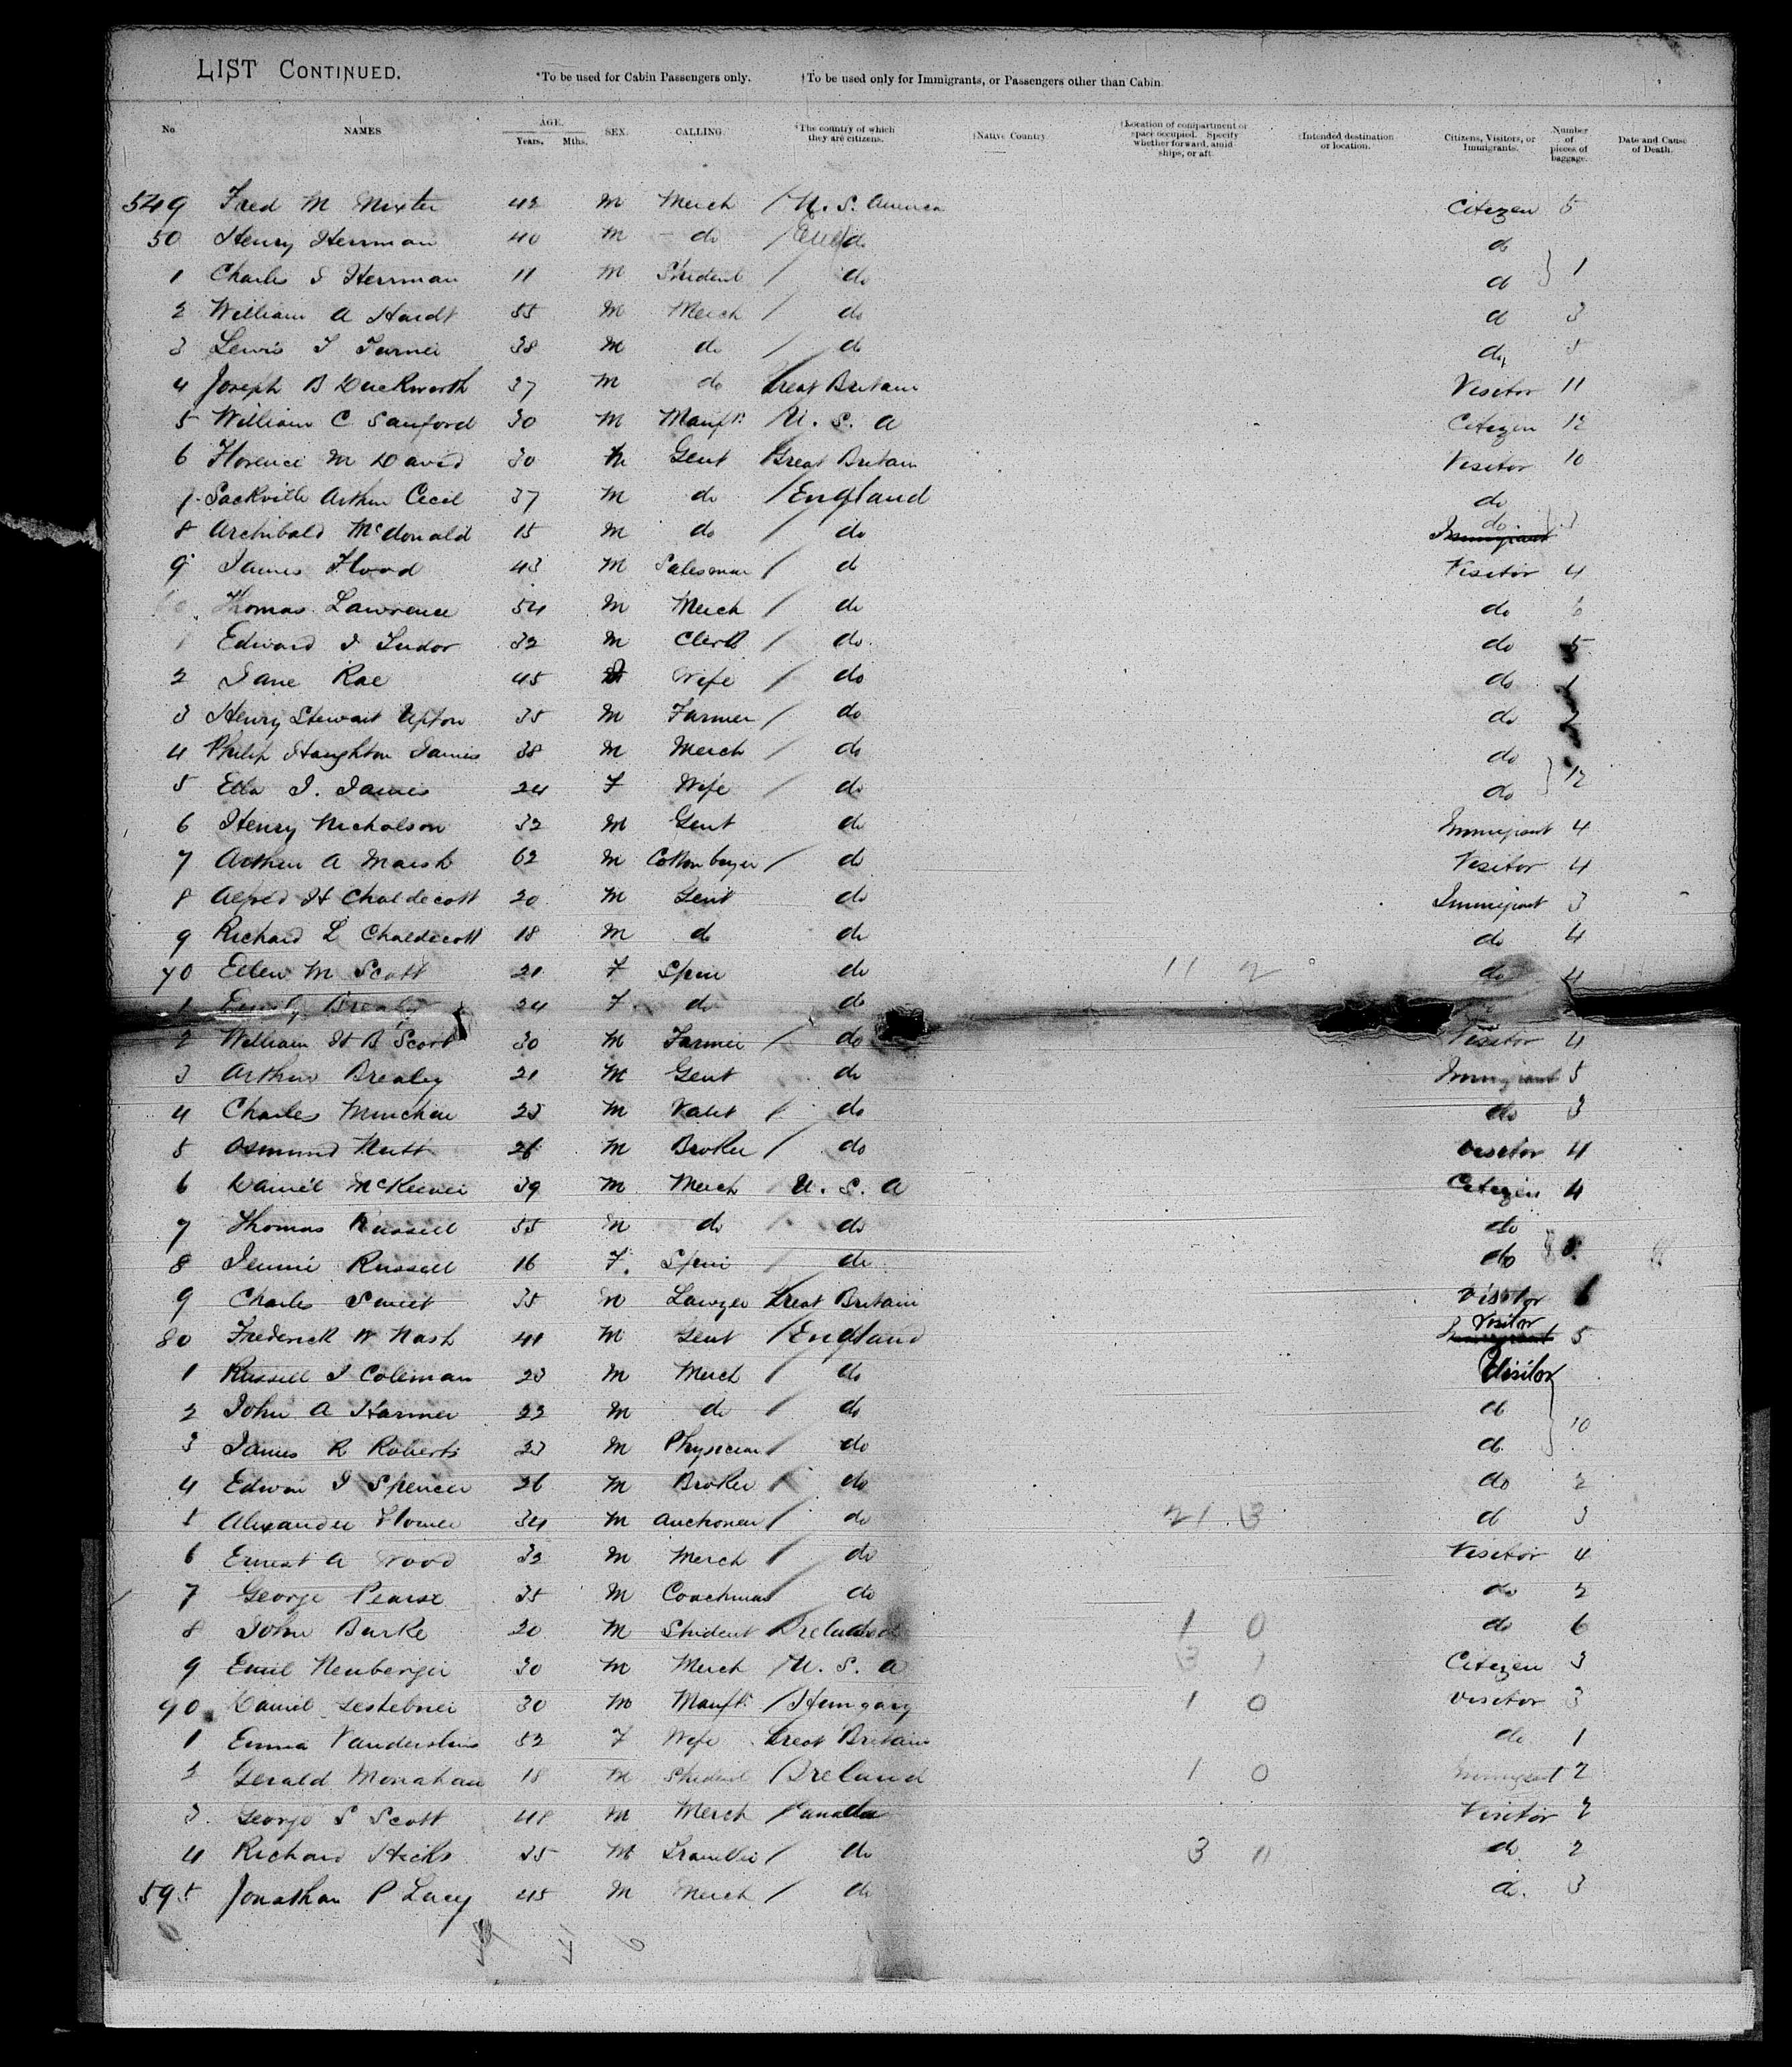 LIST CONTINUED. *To be used for Cabin Passengers only. †To be used only for Immigrants, or Passengers other than Cabin.
No. NAMES AGE. Years. Mths. SEX. CALLING. *The country of which they are citizens. †Native Country. †Location of compartment or space occupied. Specify whether forward, amid ships, or aft. †Intended destination or location. Citizens, Visitors, or Immigrants. Number of pieces of baggage. Date and Cause of Death.
549 Fred M Mixter 42 M Merch / U. S. America Citizen 5
50 Henry Herrman 40 M do / do do
1 Charles S Herrman 11 M Student / do do } 1
2 William A Hardt 55 M Merch / do do 3
3 Lewis T Turner 38 M do / do do 5
4 Joseph B Duckworth 37 M do Great Britain Visitor 11
5 William C Sanford 30 M Manft. / U. S. A Citizen 12
6 Florence M David 30 M Gent Great Britain Visitor 10
7 Sackville Arthur Cecil 37 M do / England do
8 Archibald McDonald 15 M do / do Immigrant do } 3
9 James Flood 43 M Salesman / do Visitor 4
60 Thomas Lawrence 54 M Merch / do do 6
1 Edward I Tudor 32 M Clerk / do do 5
2 Jane Rae 45 Wife / do do 1
3 Henry Stewart Upton 35 M Farmer / do do 2
4 Philip Haughton James 38 M Merch / do do
5 Ella I. James 24 F Wife / do do } 12
6 Henry Nicholson 32 M Gent do Immigrant 4
7 Arthur A Marsh 62 M Cotton buyer / do Visitor 4
8 Alfred H Chaldecott 20 M Gent do Immigrant 3
9 Richard L Chaldecott 18 M do do do 4
70 Ellen M Scott 21 F Spin do 11 2 do 4
1 Emily Brealey 24 F do do
2 William H B Scott 30 M Farmer / do Visitor 4
3 Arthur Brealey 21 M Gent do Immigrant 5
4 Charles Minchin 25 M Valet / do do 3
5 Osmund Nutt 26 M Broker / do Visitor 4
6 Daniel McKeever 39 M Merch / U. S. A Citizen 4
7 Thomas Russell 55 M do / do do
8 Jennie Russell 16 F. Spin / do do } 8
9 Charles Sweet 35 M Lawyer Great Britain Visitor 1
80 Frederick W Nash 41 M Gent / England Immigrant Visitor 5
1 Russell I Coleman 23 M Merch / do Visitor
2 John A Harmer 22 M do / do do
3 James R Roberts 23 M Physician / do do } 10
4 Edwin I Spencer 26 M Broker / do do 2
5 Alexander 34 M Auctioneer / do 21 3 do 3
6 Ernest A Wood 32 M Merch / do Visitor 4
7 George Pearse 35 M Coachman / do do 2
8 John Burke 20 M Student / Ireland 1 0 do 6
9 Emil Neuberger 30 M Merch / U. S. A 3 1 Citizen 3
90 Daniel 30 M Manft. / Hungary 1 0 Visitor 3
1 Emma 52 F Wife Great Britain do 1
2 Gerald Monahan 18 M Student / Ireland 1 0 Immigrant 2
3 George S Scott 48 M Merch / Canada Visitor 2
4 Richard Hicks 35 M Traveller / do 3 0 do. 2
595 Jonathan P Lucy 45 M Merch / do do. 3